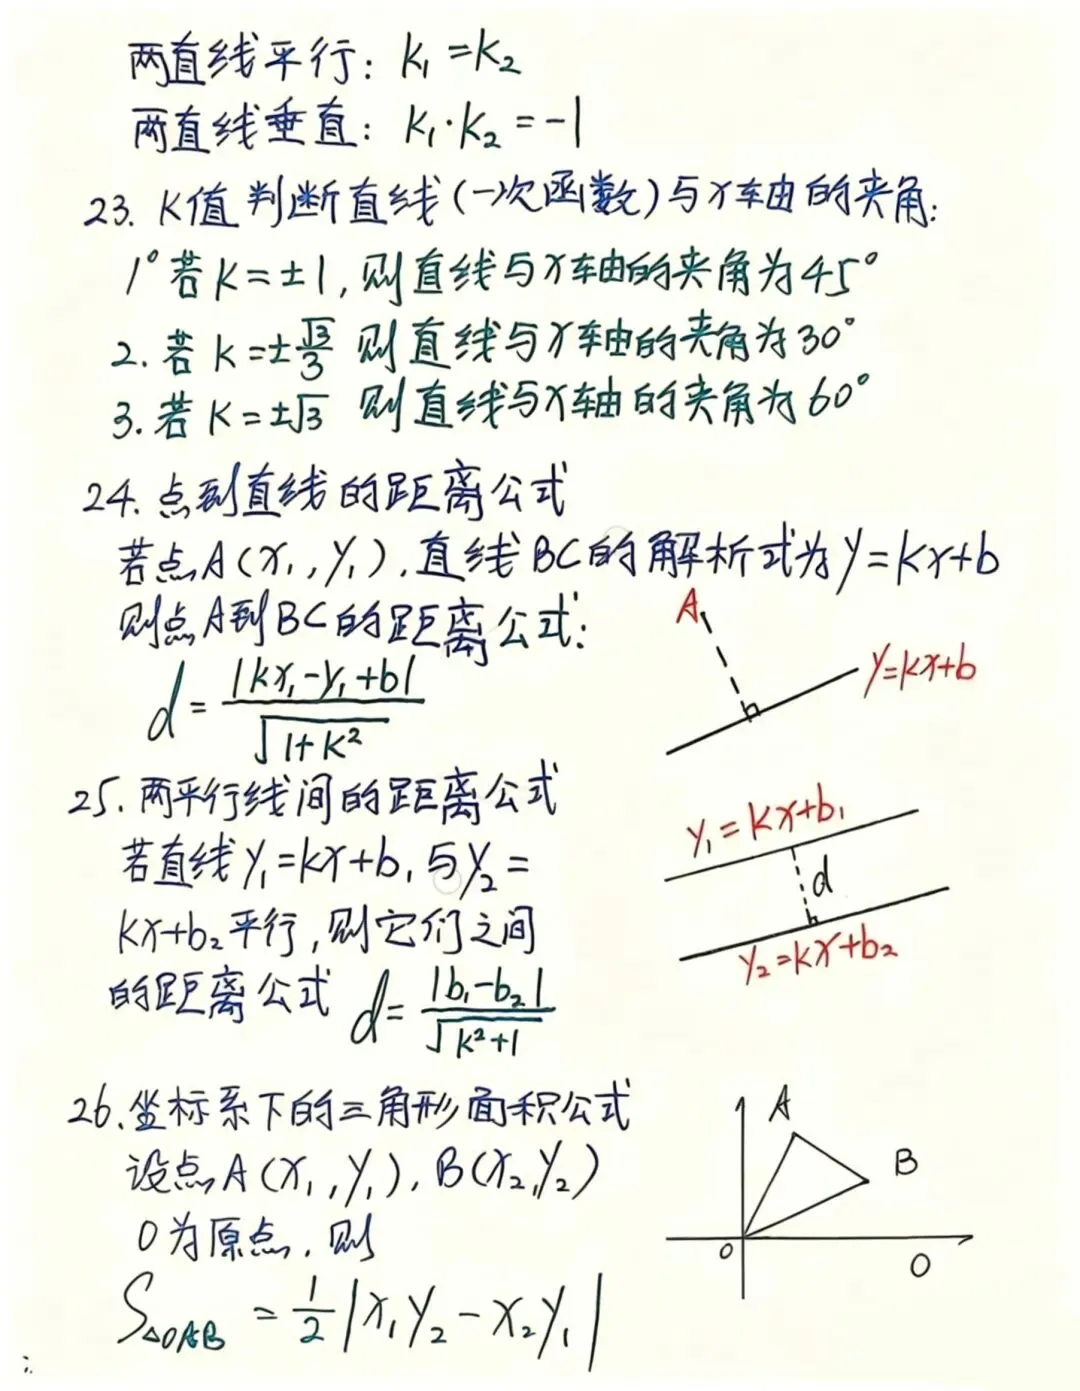 两直线平行: k₁=k₂
两直线垂直: k₁·k₂=-1
23. K值判断直线(一次函数)与x轴的夹角:
1°若K=±1,则直线与x轴的夹角为45°
2.若K=±√3/3 则直线与x轴的夹角为30°
3.若K=±√3 则直线与x轴的夹角为60°
24.点到直线的距离公式
若点A(x₁,y₁),直线BC的解析式为y=kx+b
则点A到BC的距离公式:
d=|kx₁-y₁+b|/√1+k²
A
y=kx+b
25.两平行线间的距离公式
若直线y₁=kx+b₁与y₂=
kx+b₂平行,则它们之间
的距离公式 d=|b₁-b₂|/√k²+1
y₁=kx+b₁
d
y₂=kx+b₂
26.坐标系下的三角形面积公式
设点A(x₁,y₁),B(x₂,y₂)
O为原点,则
S△OAB=1/2|x₁y₂-x₂y₁|
A
B
O
O